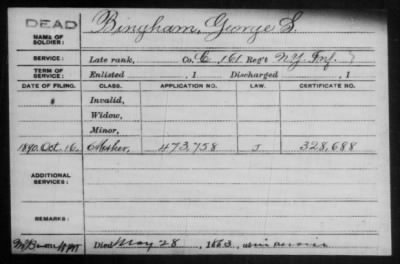 DEAD
NAME OF SOLDIER: Bingham, George S.
SERVICE: Late rank, Co. E, 161 Reg't N.Y. Inf.
TERM OF SERVICE: Enlisted , 1 Discharged , 1
DATE OF FILING. CLASS. APPLICATION NO. LAW. CERTIFICATE NO.
Invalid,
Widow,
Minor,
1890. Oct. 16. Mother, 473,758 J 328,688
ADDITIONAL SERVICES:
REMARKS:
Died May 28, 1863,